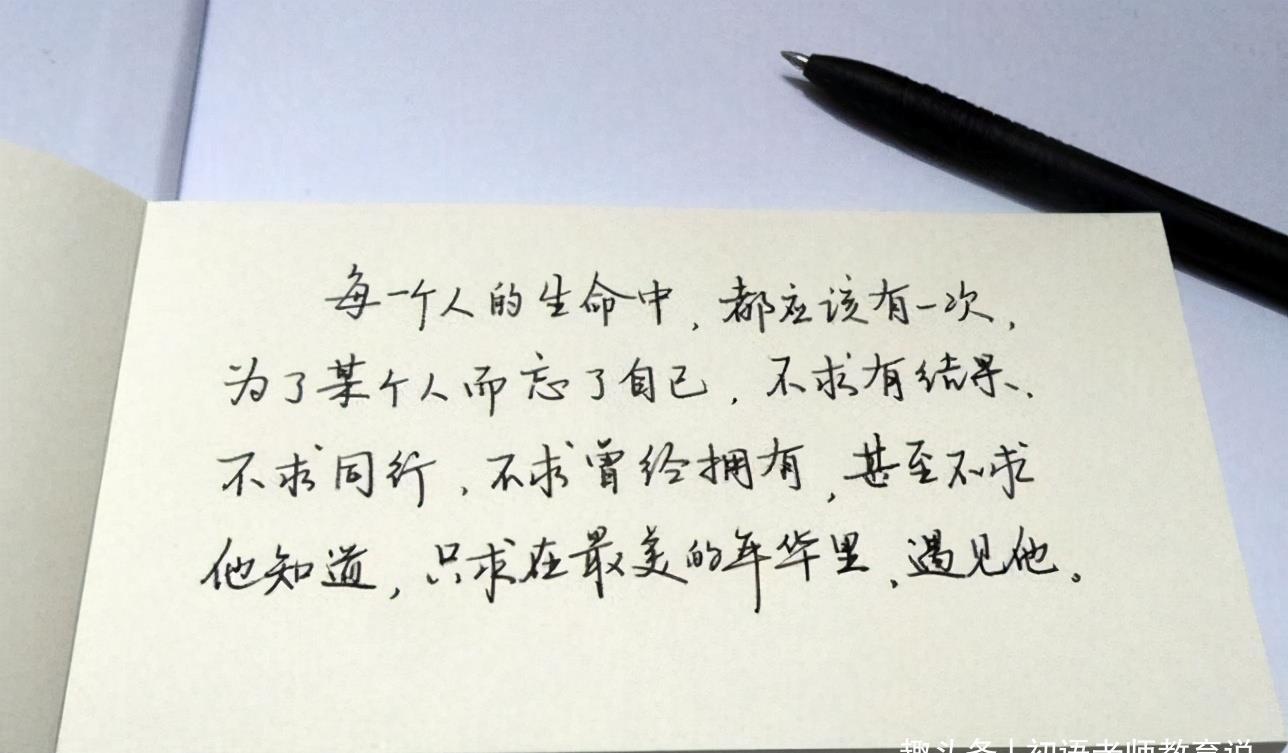 每一个人的生命中，都应该有一次，
为了某个人而忘了自己，不求有结果、
不求同行，不求曾经拥有，甚至不求
他知道，只求在最美的年华里，遇见他。
趣头条丨初语老师教育说